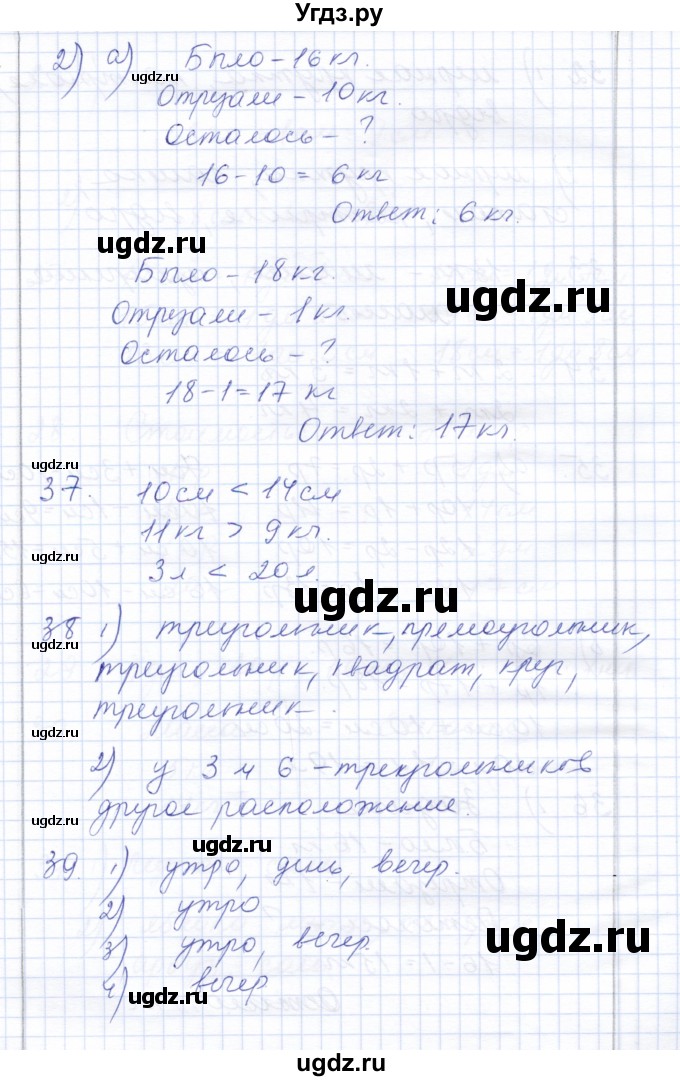 Угдз.ру
2) а) Было - 16 кг.
ugdz.ru
Отрезали - 10 кг.
ugdz.ru
Осталось - ?
16 - 10 = 6 кг
Ответ: 6 кг.
ugdz.ru
Было - 18 кг.
ugdz.ru
Отрезали - 1 кг.
Осталось - ?
18 - 1 = 17 кг
Ответ: 17 кг.
ugdz.ru
37. 10 см < 14 см
11 кг > 9 кг.
ugdz.ru
3 л < 20 л.
ugdz.ru
38 1) треугольник, прямоугольник,
ugdz.ru
треугольник, квадрат, круг,
треугольник.
ugdz.ru
2) у 3 и 6 - треугольников
другое расположение.
ugdz.ru
ugdz.ru
39. 1) утро, день, вечер.
2) утро
ugdz.ru
3) утро, вечер.
ugdz.ru
4) вечер
ugdz.ru
ugdz.ru